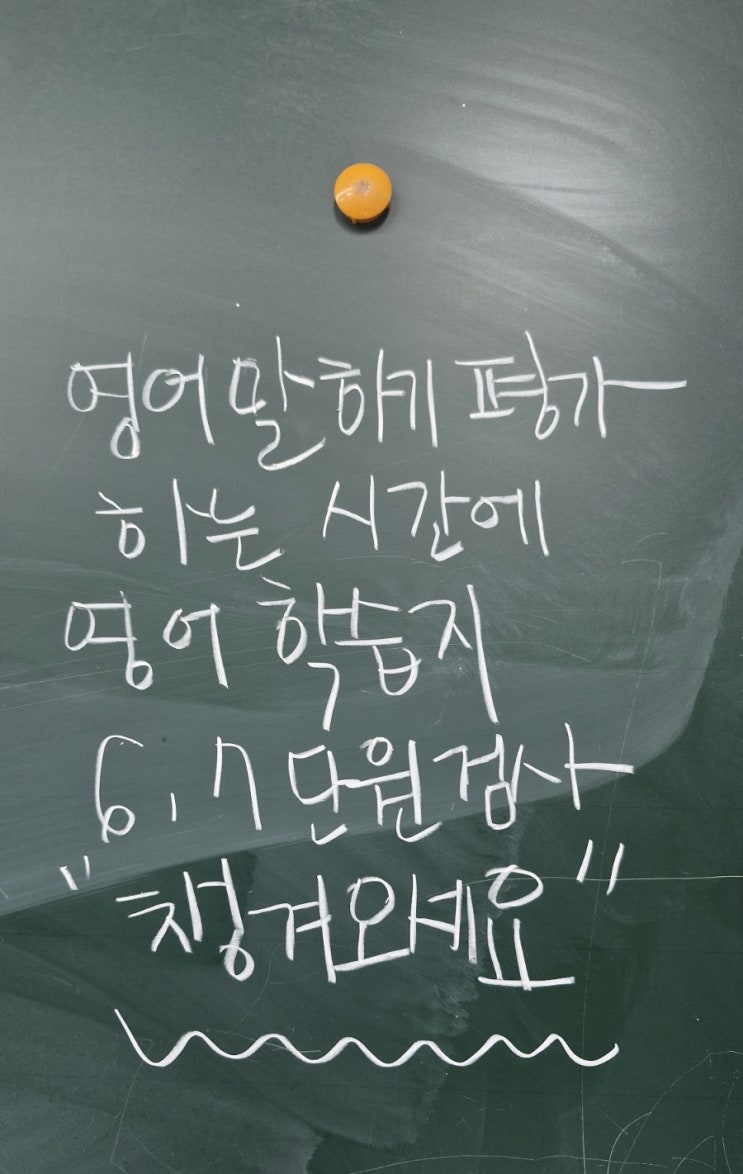 영어 말하기 평가
하는 시간에
영어 학습지
6, 7 단원 검사
"챙겨오세요"